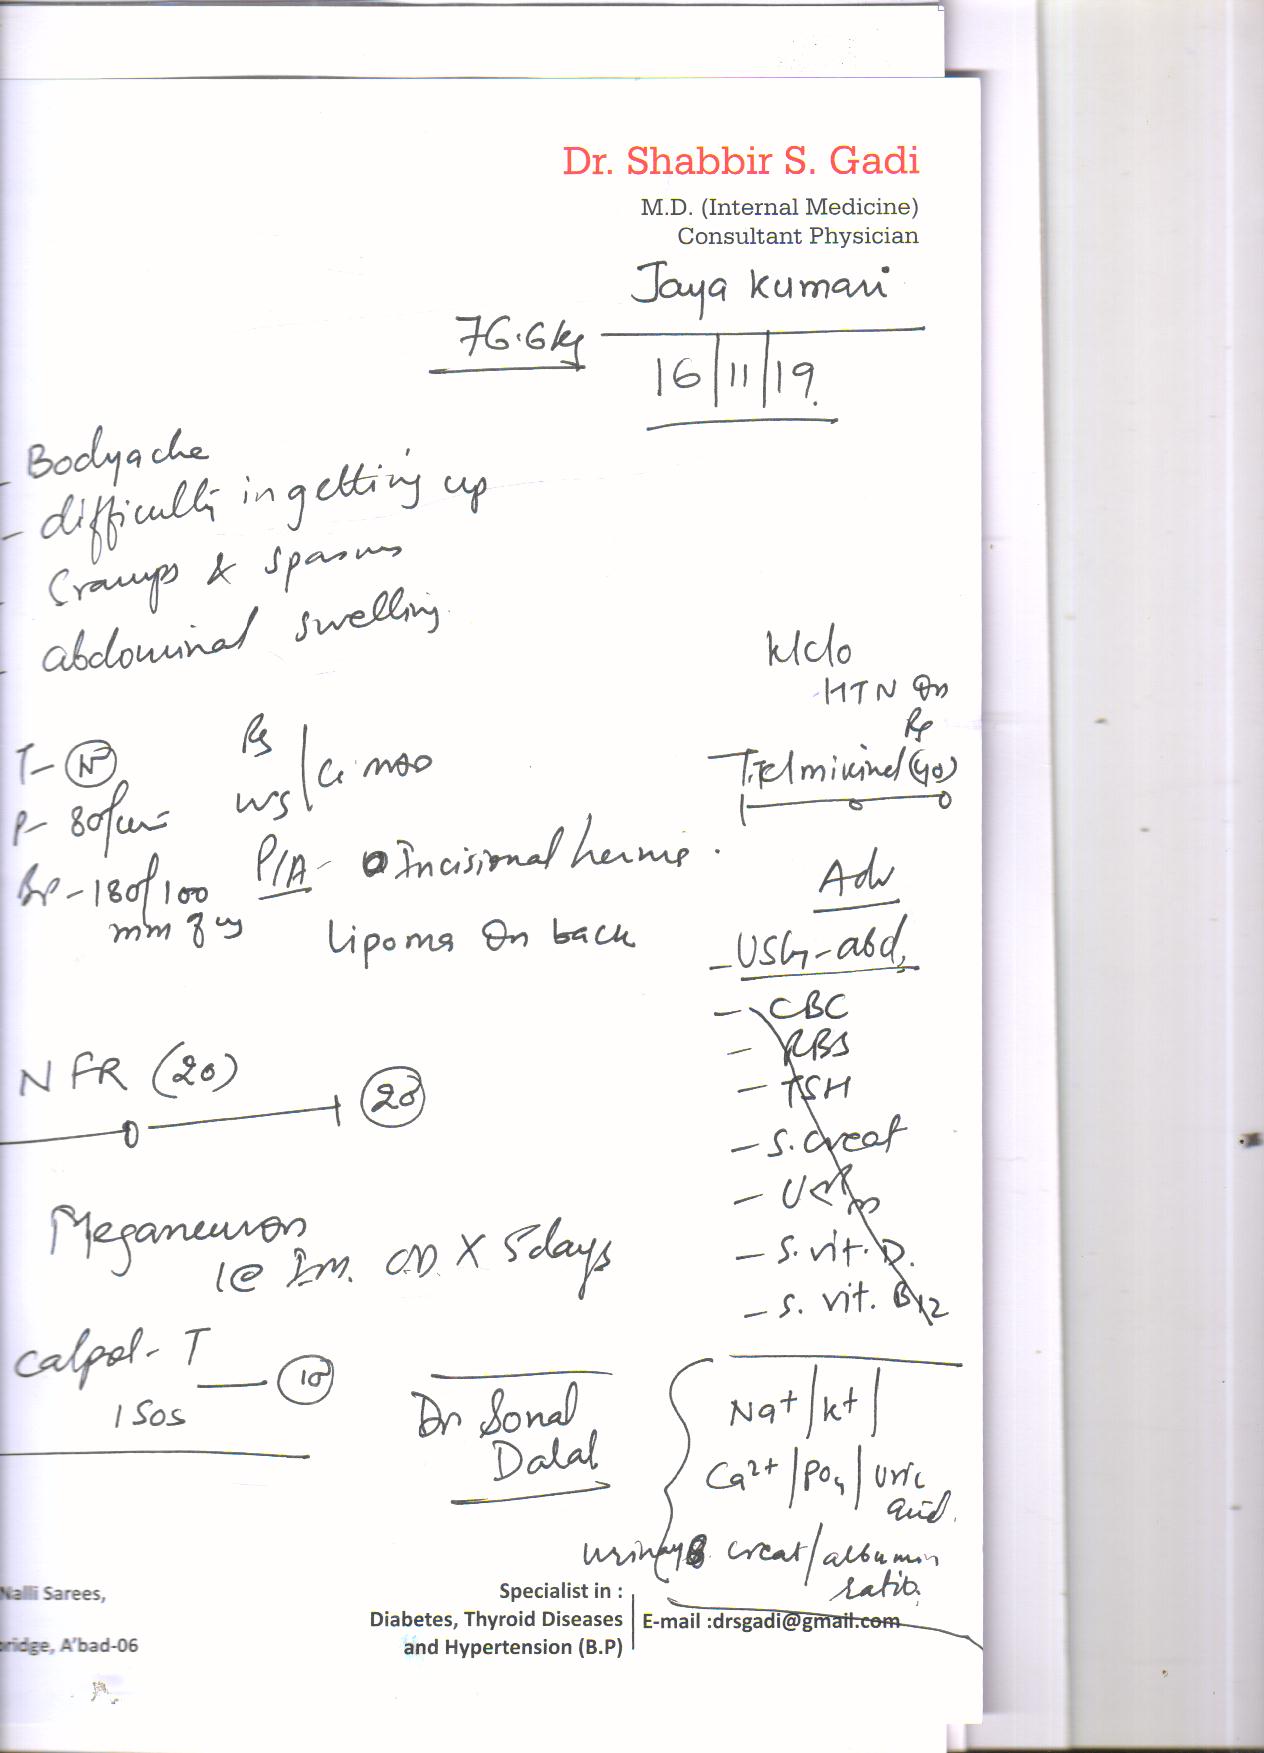 Dr. Shabbir S. Gadi
M.D. (Internal Medicine)
Consultant Physician
Jaya Kumari
76.6kg
16/11/19.
- Bodyache
- difficulty in getting up
- Cramps & spasms
- abdominal swelling.
K/c/o
HTN on
Rx
T. (40)
T- N
P- 80/min
BP - 180/100
mm of Hg
RS
CVS
P/A - Incisional hernia.
Lipoma on back
Adv
- USG - abd,
- CBC
- RBS
- TSH
- S. creat
- S. vit. D.
- S. vit. B12
NFR (20)
20
Meganeuron
1 @ I.M. OD X 5 days
Calpol - T
10
1 SOS
Dr Sonal
Dalal
Na+ / K+ /
Ca2+ / PO4 / Uric
acid.
urinary creat / albumin
ratio.
Nalli Sarees,
bridge, A'bad-06
Specialist in :
Diabetes, Thyroid Diseases
and Hypertension (B.P)
E-mail :drsgadi@gmail.com